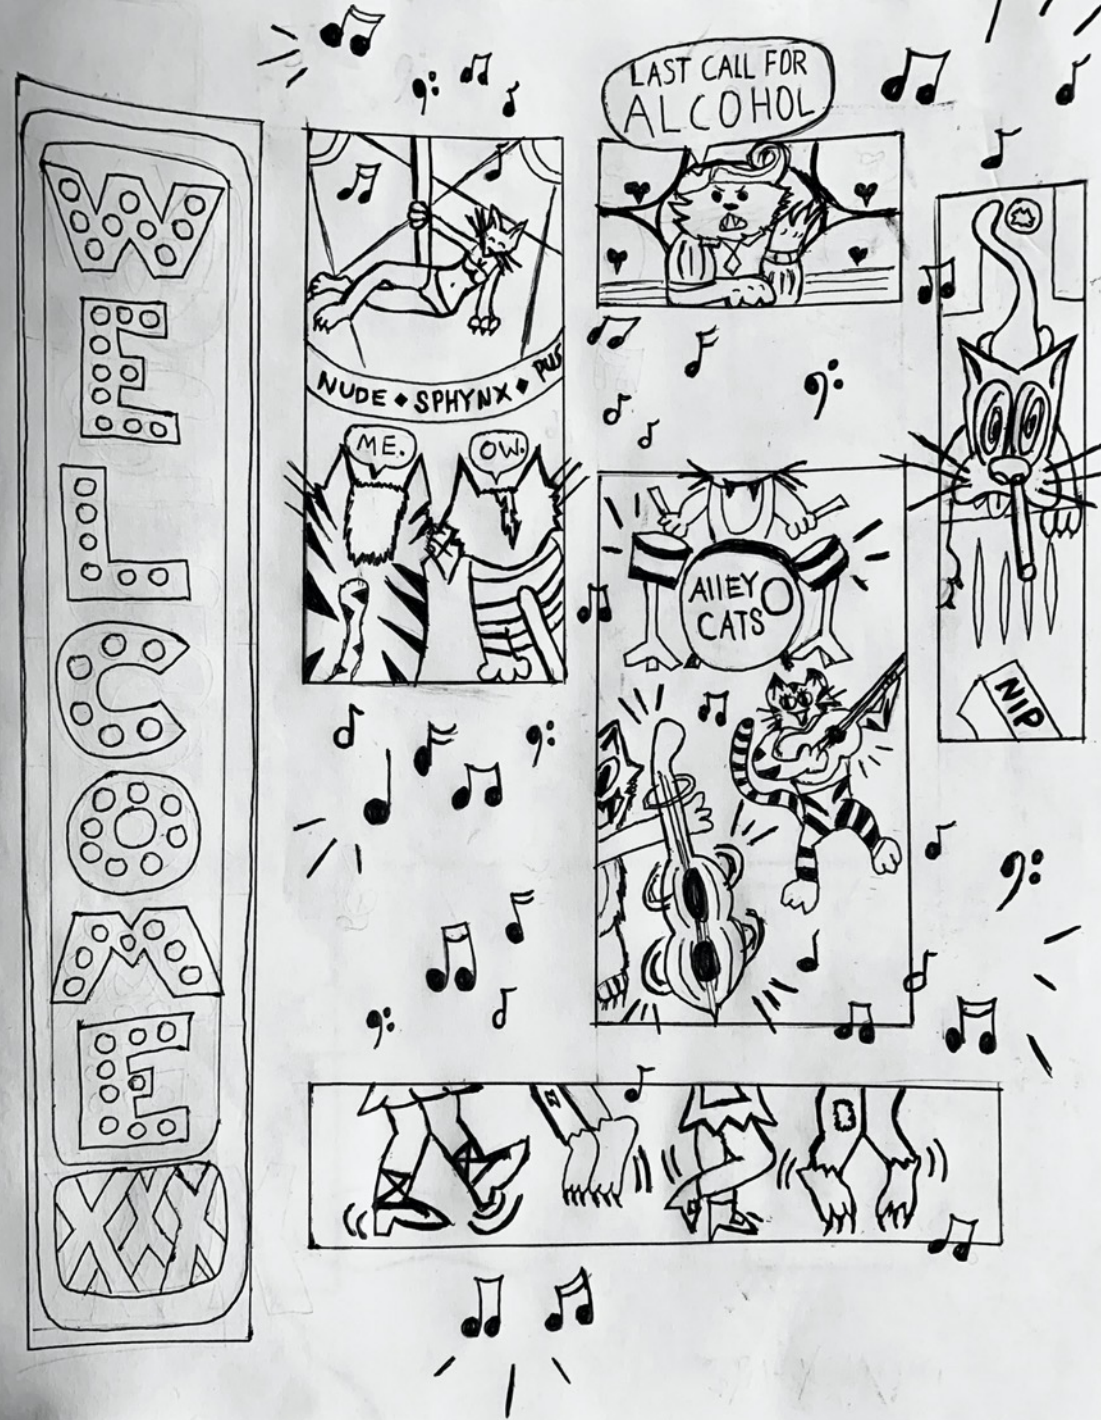 WELCOME
XXX
NUDE ♦ SPHYNX ♦ PUS
ME.
OW.
LAST CALL FOR
ALCOHOL
AllEY
CATS
NIP